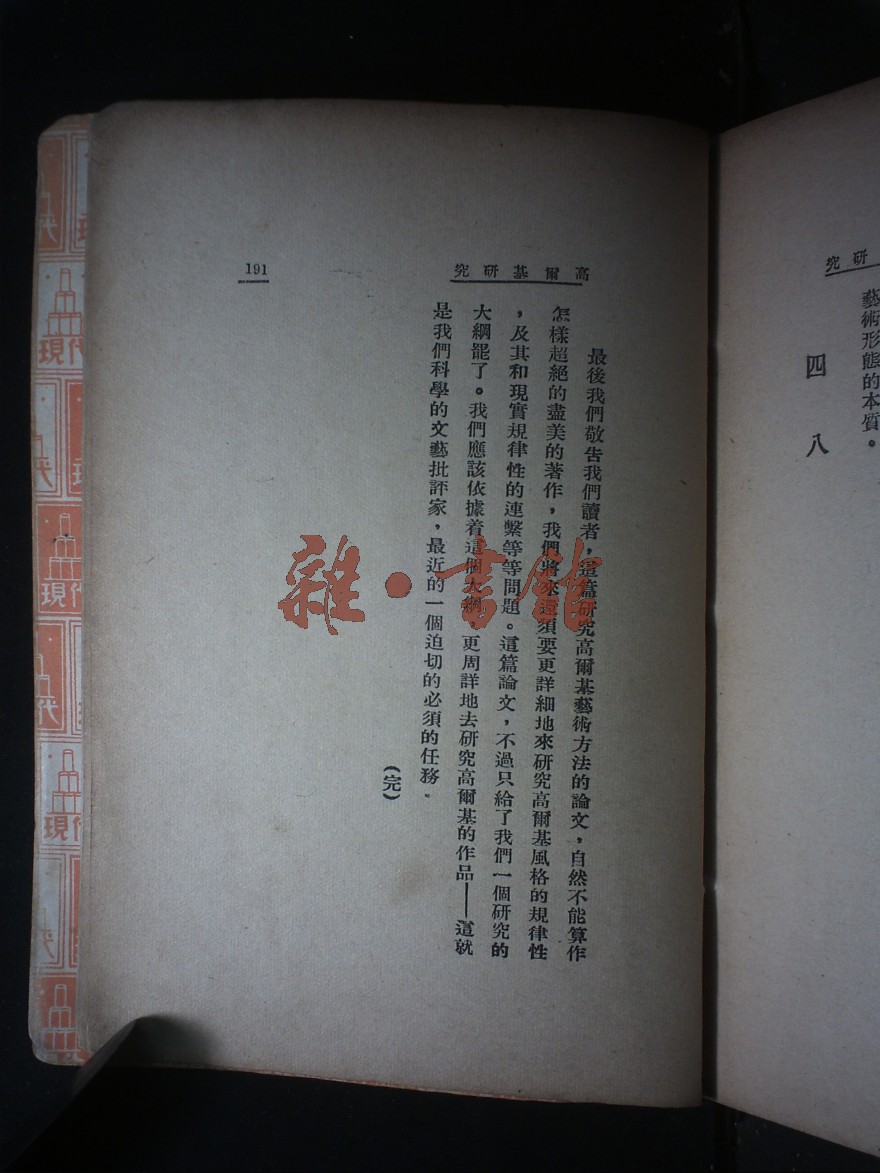 研究
藝術形態的本質。
四八
高爾基研究
191
最後我們敬告我們讀者，這篇研究高爾基藝術方法的論文，自然不能算作
怎樣超絕的盡美的著作，我們將來還須要更詳細地來研究高爾基風格的規律性
，及其和現實規律性的連繫等等問題。這篇論文，不過只給了我們一個研究的
大綱罷了。我們應該依據着這個大綱，更周詳地去研究高爾基的作品——這就
是我們科學的文藝批評家，最近的一個迫切的必須的任務。
(完)
雜·書館
代
現代
代
現代
代
現代
代